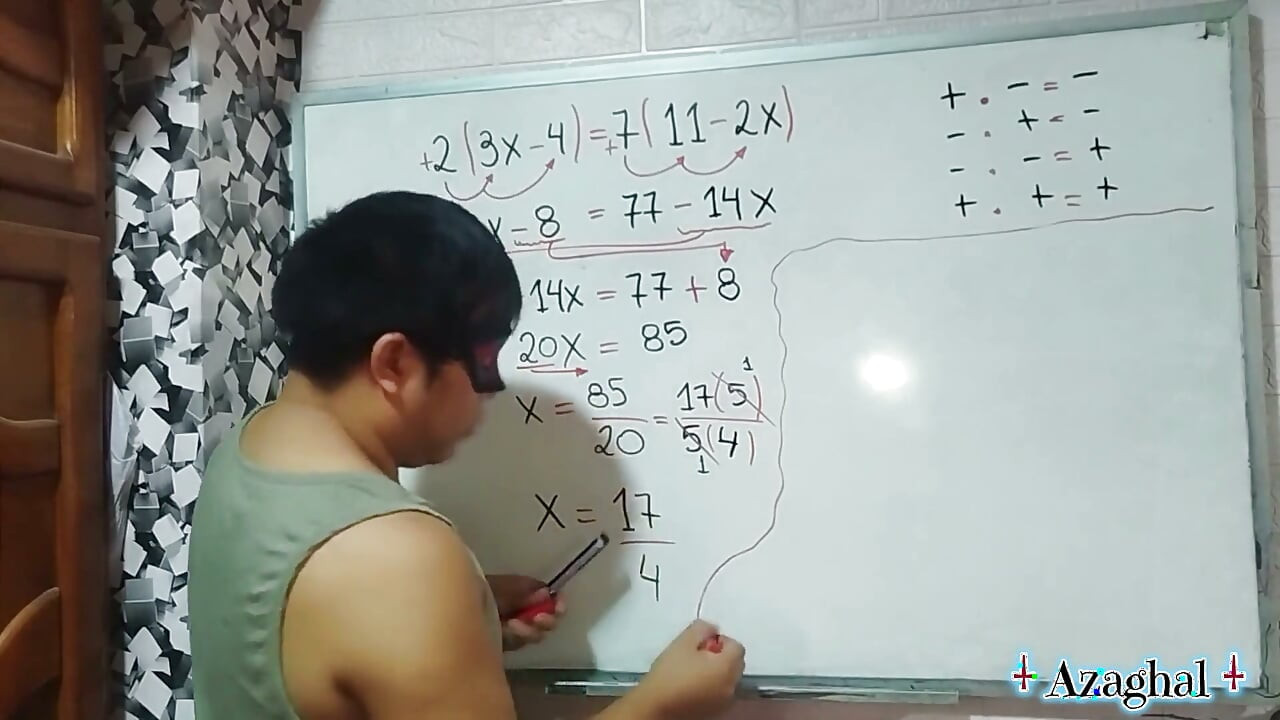 +2(3x-4)=+7(11-2x)
x-8 = 77-14x
14x = 77+8
20x = 85
x = 85/20 = 17(5)/5(4)
1
1
x = 17/4
+ . - = -
- . + = -
- . - = +
+ . + = +
Azaghal